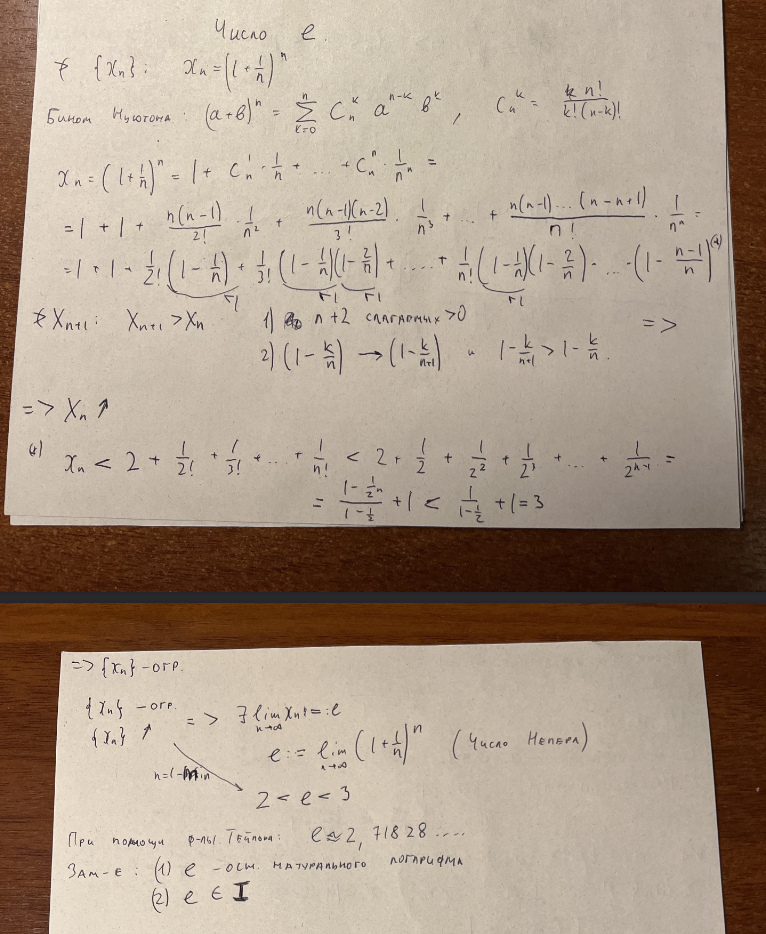 Число e.
∀ {xₙ}: xₙ = (1 + 1/n)ⁿ
Бином Ньютона: (a+b)ⁿ = Σ_{k=0}^{n} Cₙᵏ aⁿ⁻ᵏ bᵏ, Cₙᵏ = n!/(k!(n-k)!)
xₙ = (1 + 1/n)ⁿ = 1 + Cₙ¹ · 1/n + ... + Cₙⁿ · 1/nⁿ =
= 1 + 1 + n(n-1)/2! · 1/n² + n(n-1)(n-2)/3! · 1/n³ + ... + n(n-1)...(n-n+1)/n! · 1/nⁿ =
= 1 + 1 + 1/2! (1 - 1/n) + 1/3! (1 - 1/n)(1 - 2/n) + .... + 1/n! (1 - 1/n)(1 - 2/n) · ... · (1 - (n-1)/n)
<1 <1 <1 <1
xₙ₊₁: xₙ₊₁ > xₙ 1) n+2 слагаемых >0 =>
2) (1 - k/n) → (1 - k/(n+1)) и 1 - k/(n+1) > 1 - k/n.
=> xₙ ↑
xₙ < 2 + 1/2! + 1/3! + ... + 1/n! < 2 + 1/2 + 1/2² + 1/2³ + ... + 1/2ⁿ⁻¹ =
= (1 - 1/2ⁿ)/(1 - 1/2) + 1 < 1/(1 - 1/2) + 1 = 3
=> {xₙ} - огр.
{xₙ} - огр.
{xₙ} ↑ => ∃ lim_{n→∞} xₙ =: e
e := lim_{n→∞} (1 + 1/n)ⁿ (Число Непера)
2 < e < 3
При помощи ф-лы Тейлора: e ≈ 2,71828....
Зам-е: (1) e - осн. натурального логарифма
(2) e ∈ I